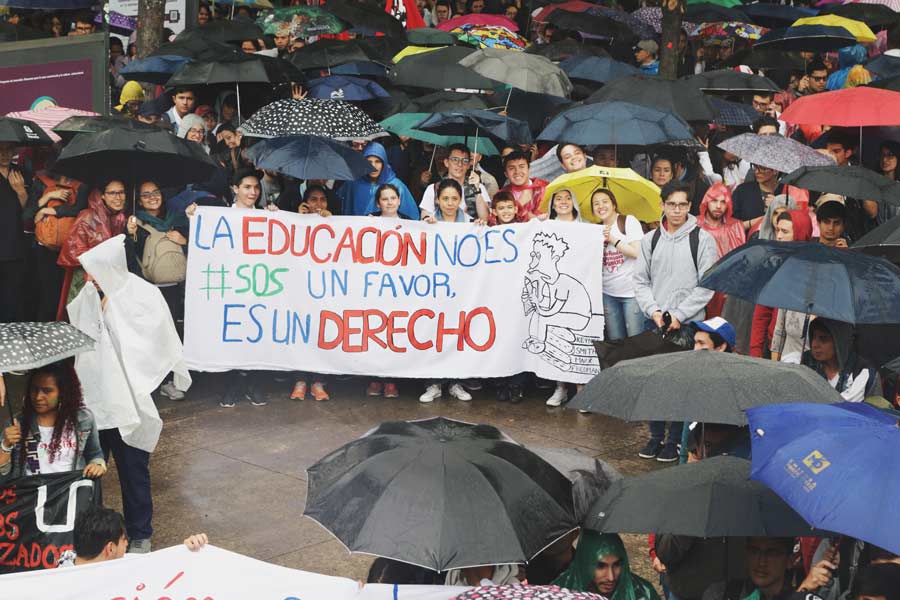 LA EDUCACIÓN NO ES
#SOS UN FAVOR,
ES UN DERECHO
KEYN
SMITH
MARX
FRIEDMAN
OS
OS
ZADOS
U